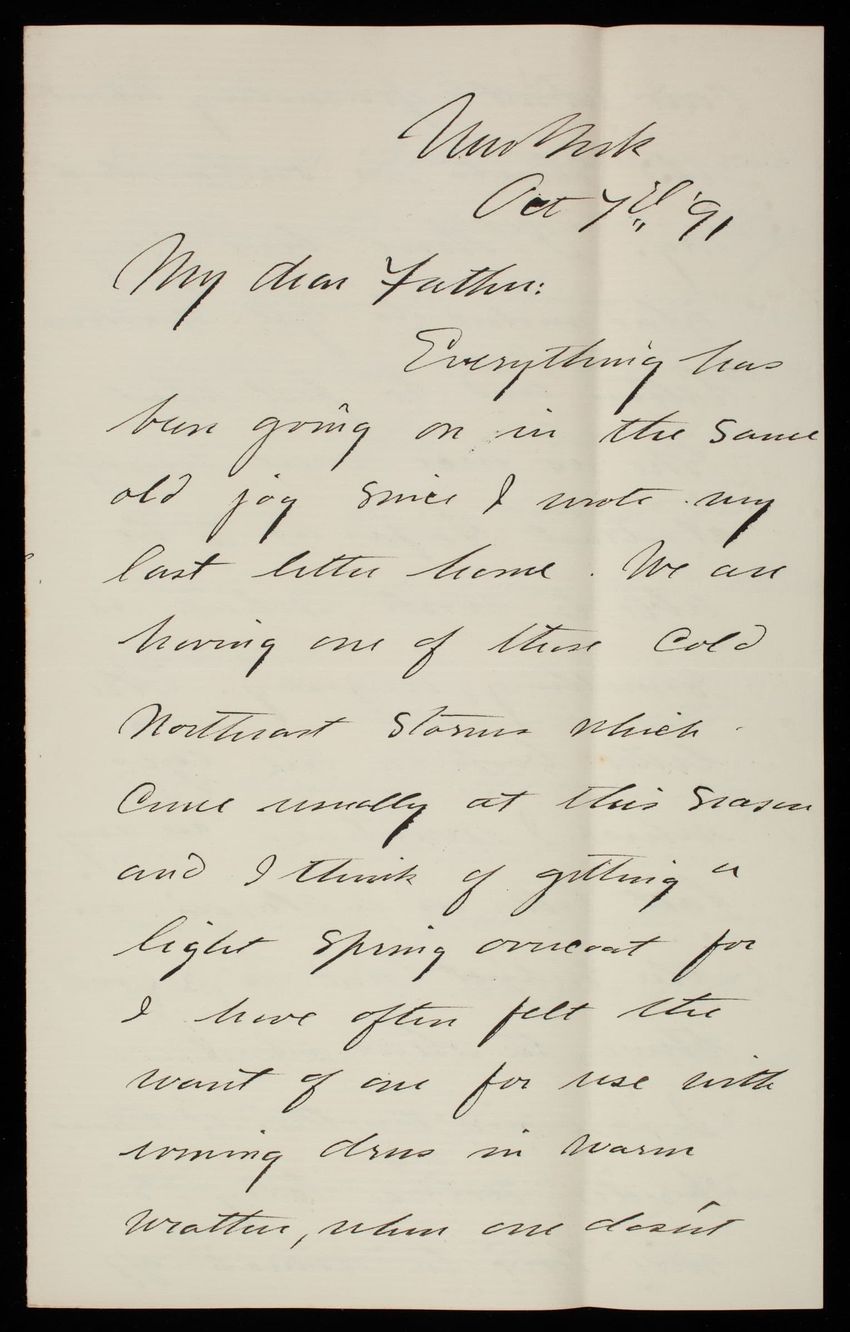 New York
Oct 7th '91
My dear Father:
Everything has
been going on in the same
old jog since I wrote my
last letter home. We are
having one of those cold
Northeast storms which
come usually at this season
and I think of getting a
light spring overcoat for
I have often felt the
want of one for use with
evening dress in warm
weather, when one doesn't